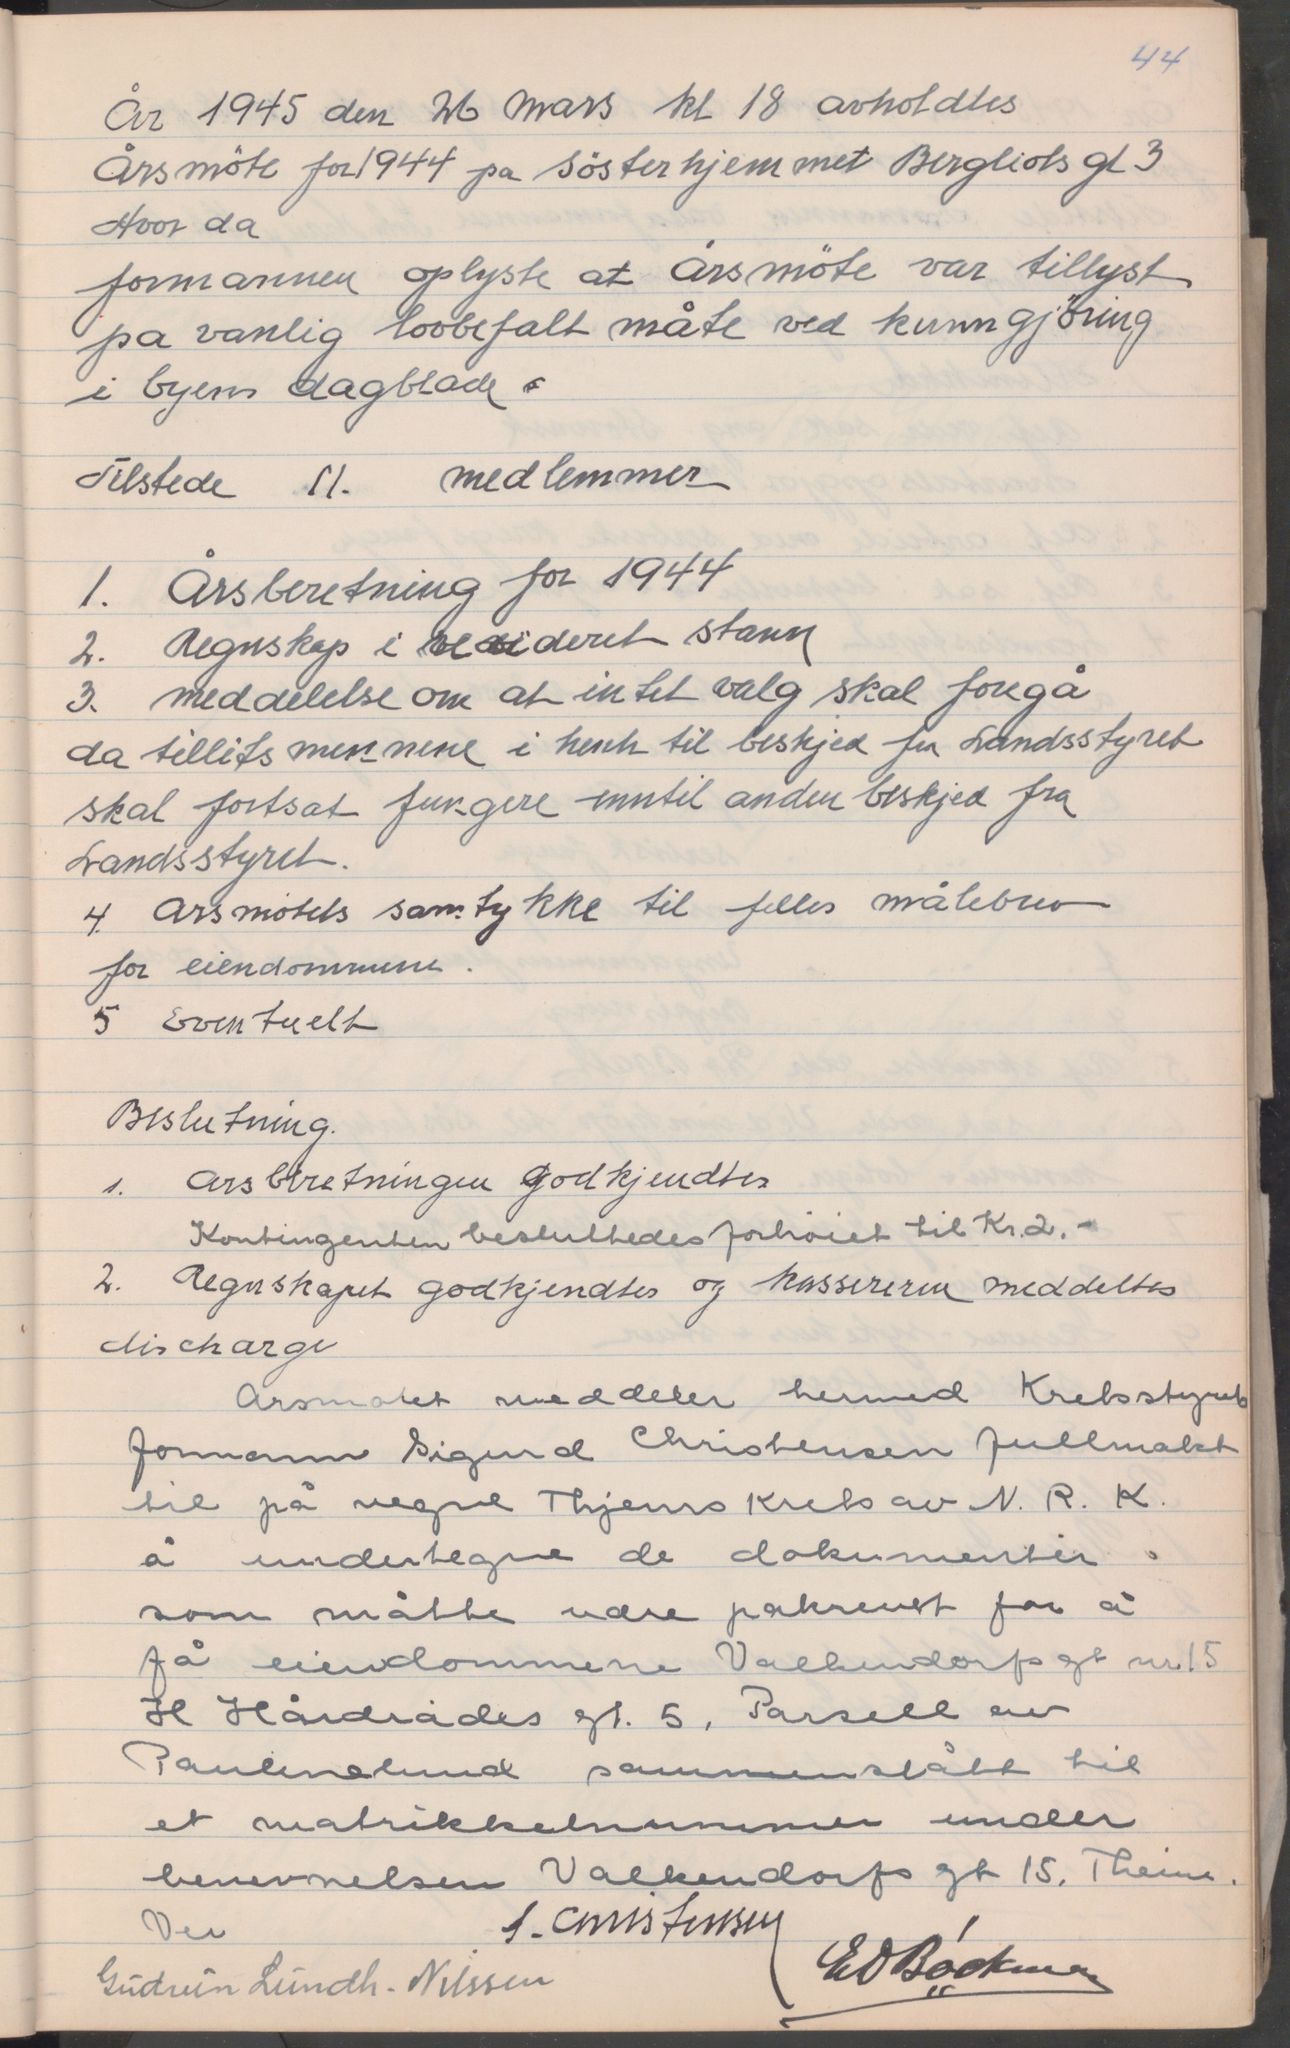 44
År 1945 den 26 Mars kl 18 avholdtes
Årsmöte for 1944 pa Sösterhjemmet Bergliots gt 3
Hvor da
formannen oplyste at Årsmöte var tillyst
pa vanlig lovbefalt måte ved kunngjöring
i byens dagblade.
Tilstede 11. medlemmer
1. Årsberetning for 1944
2. Regnskap i revideret stann
3. meddelelse om at intet valg skal foregå
da tillitsmennene i henh til beskjed fra Landsstyret
skal fortsat fungere inntil anden beskjed fra
Landsstyret.
4. Arsmötets samtykke til felles målebrev
for eiendommene.
5 Eventuelt
Beslutning.
1. Arsberetningen godkjendtes
Kontingenten besluttedes forhöiet til Kr. 2.-
2. Regnskapet godkjendtes og kassereren meddeltes
discharge
Arsmøtet meddeler hermed Kretsstyrets
formann Sigurd Christensen fullmakt
til på vegne Thjems Krets av N. R. K.
å undertegne de dokumenter
som måtte være påkrevet for å
få eiendommene Valkendorfs gt nr. 15
H Hårdrådes gt. 5, Parsell av
Paulinelund sammenslått til
et matrikkelnummer under
benevnelsen Valkendorfs gt 15, Theim.
S. Christensen
Gudrun Lundh-Nilssen
E O Bøckman